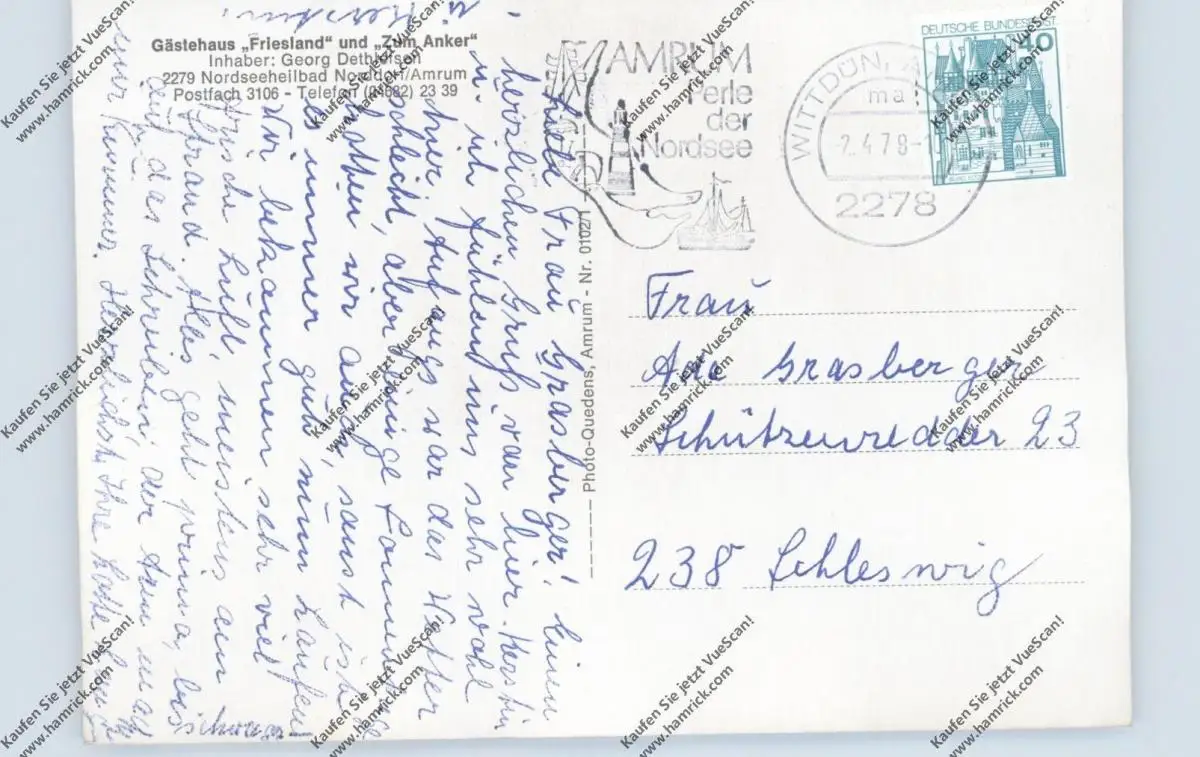 Gästehaus „Friesland" und „Zum Anker"
Inhaber: Georg Dethlefsen
2279 Nordseeheilbad Norddorf/Amrum
Postfach 3106 - Telefon (04682) 23 39
AMRUM
Perle
der
Nordsee
WITTDÜN,
ma
2.4.78
2278
DEUTSCHE BUNDESPOST
40
Photo-Quedens, Amrum - Nr. 0102/1
Liebe Frau Grasberger! Einen
herzlichen Gruß von hier. Kerstin
u. ich fühlen uns sehr wohl
hier. Anfangs war das Wetter
schlecht, aber einige Sonnentage
hatten wir auch, sonst ist
es immer gut zum Laufen
Wir bekommen sehr viel
frische Luft, meistens am
Strand. Alles geht prima, bis
auf das Schreiben, der Arm macht
mir Kummer. Herzlichst Ihre
u. Kerstin
Frau
Grasberger
Schützenredder 23
238 Schleswig
Kaufen Sie jetzt VueScan!
www.hamrick.com